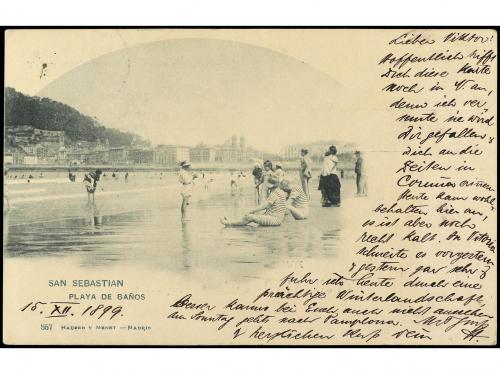 Lieber Viktor!
Hoffentlich trifft
Dich diese Karte
noch in V. an,
denn ich ver
mute sie wird
Dir gefallen &
Dich an die
Zeiten in
Coruna erinnern
Heute kam wohl-
behalten hier an,
es ist aber noch
recht kalt. In Vitoria
schneite es vorgestern
& gestern gar sehr &
fuhr ich heute durch eine
prächtige Winterlandschaft,
besser kann's bei Euch auch nicht aussehen
Am Sonntag geht's nach Pamplona. Mit
& herzlichen Dein
SAN SEBASTIAN
PLAYA DE BAÑOS
15. XII. 1899.
557 HAUSER Y MENET — MADRID